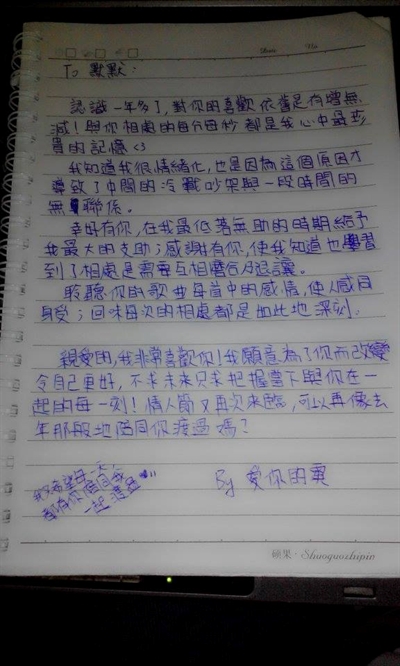 To 默默:
認識一年多了,對你的喜歡依舊是有增無
減!與你相處的每分每秒都是我心中最珍
貴的記憶<3
我知道我很情緒化,也是因為這個原因才
導致了中間的冷戰吵架與一段時間的
無聯係。
幸好有你,在我最低著無助的時期給予
我最大的支助;感謝有你,使我知道也學習
到了相處是需要互相磨合及退讓。
聆聽你的歌曲每首中的感情,使人感同
身受;回味每次的相處都是如此地深刻.
親愛的,我非常喜歡你!我願意為了你而改變
令自己更好,不求未來只求把握當下與你在一
起的每一刻!情人節又再次來臨,可以再像去
年那般地陪同你渡過嗎?
我希望每一天
都有你陪同我
一起渡過
By 愛你的
碩果·Shuoguozhipin